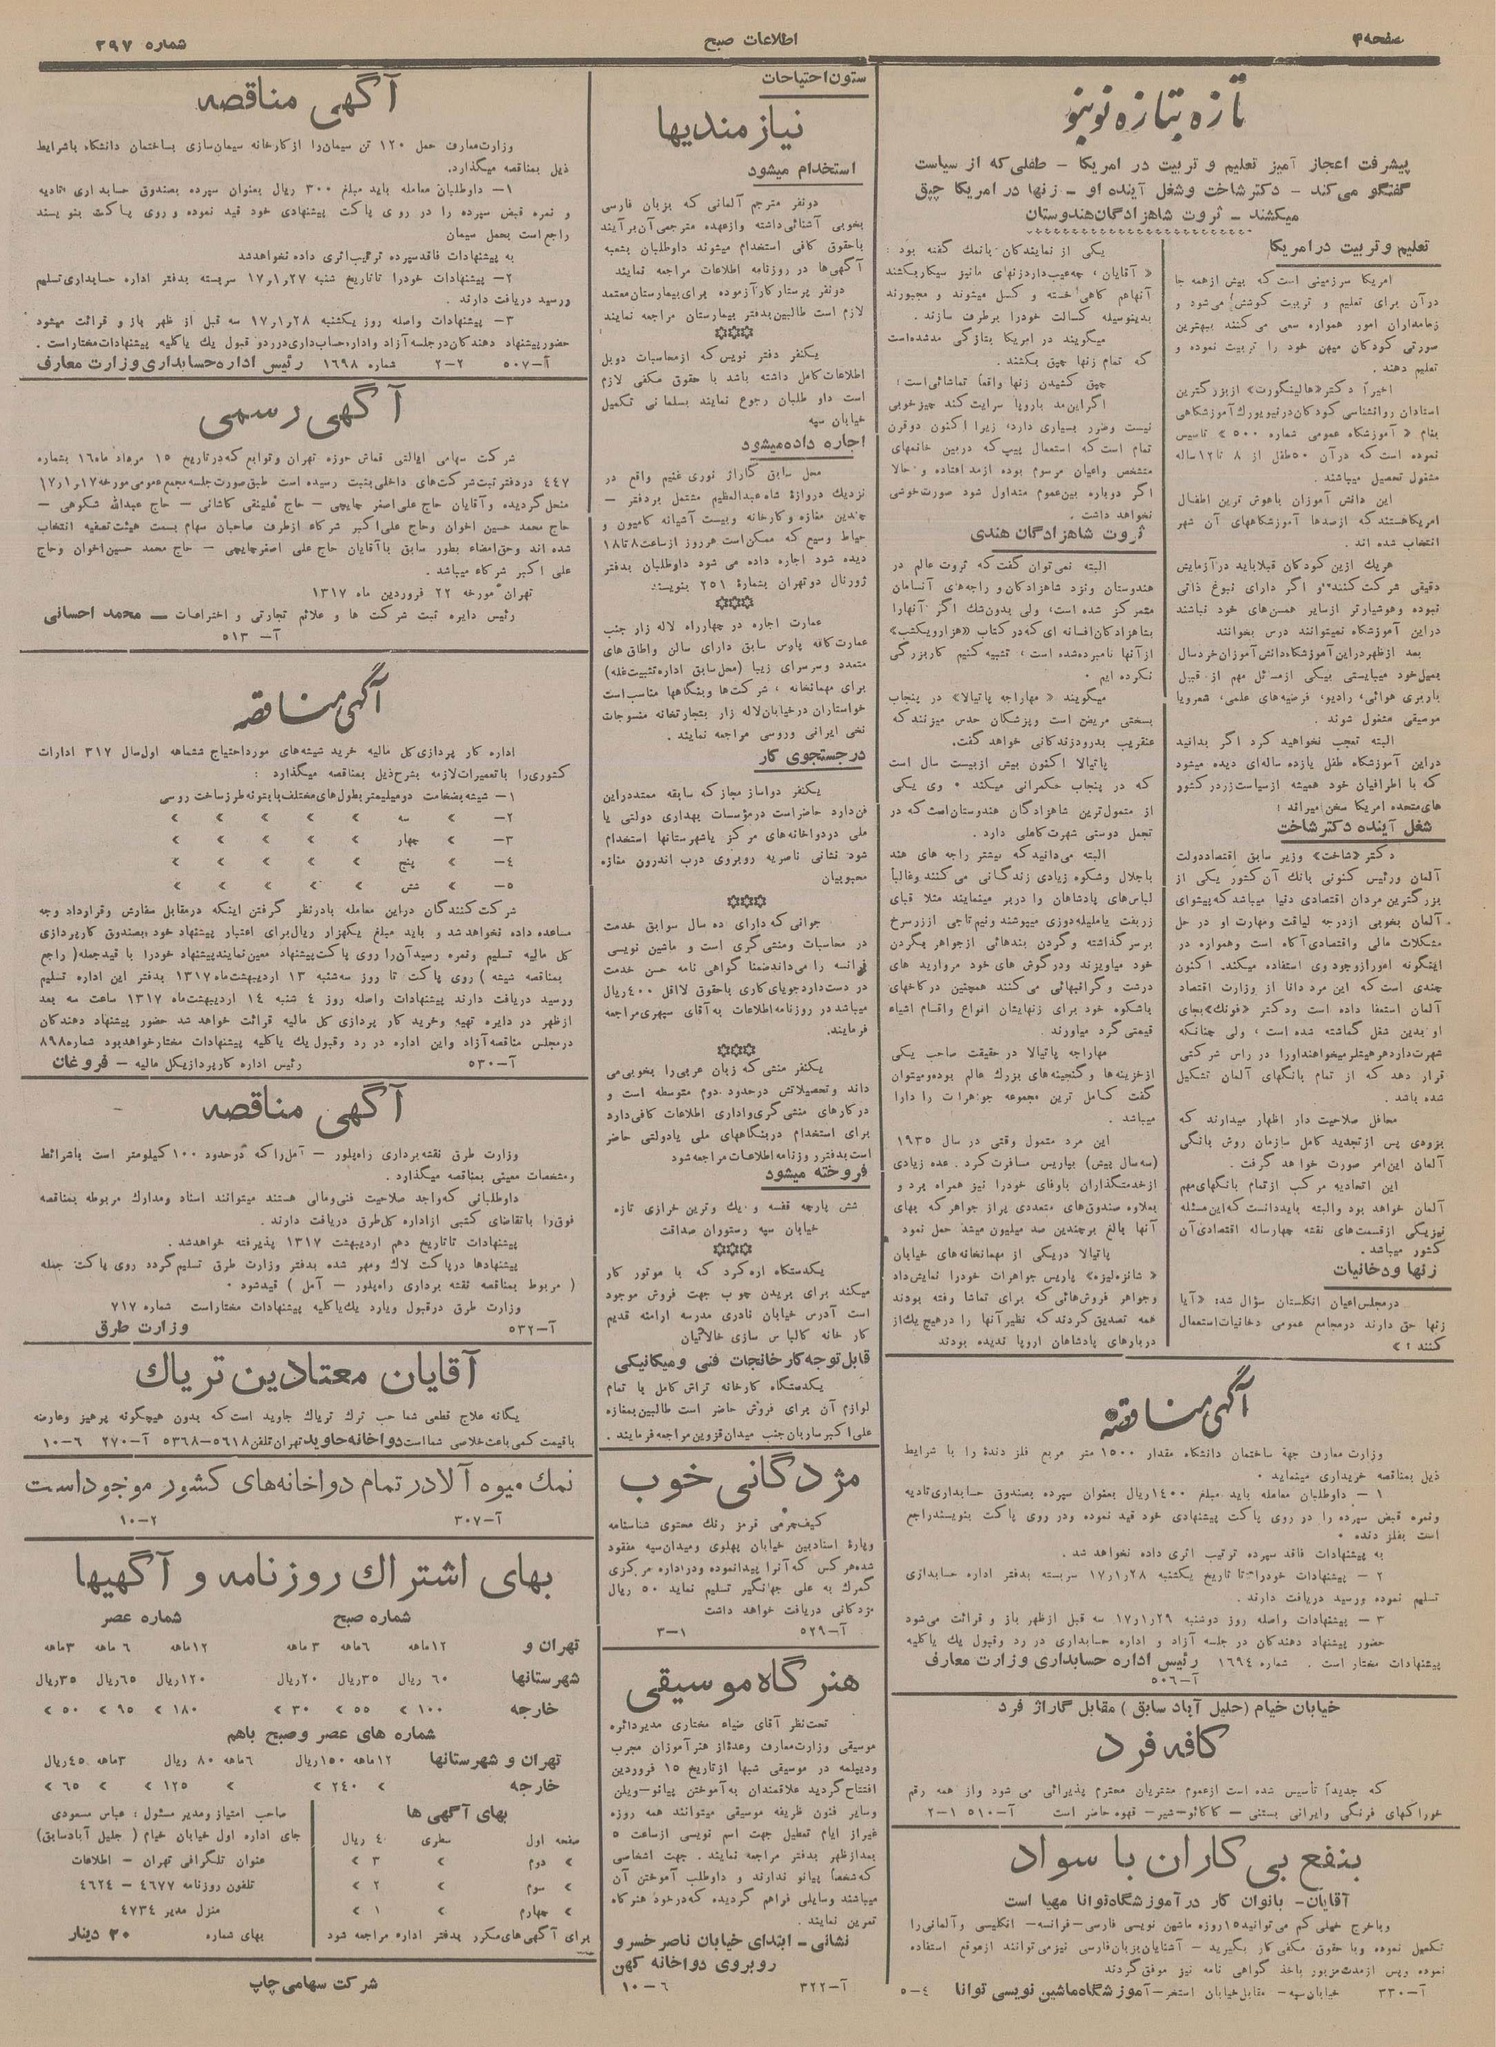 صفحه ۴
اطلاعات صبح
شماره ۳۹۷
تازه بتازه نو بنو
پیشرفت اعجاز آمیز تعلیم و تربیت در امریکا - طفلی که از سیاست
گفتگو می‌کند - دکتر شاخت و شغل آینده او - زنها در امریکا چپق
میکشند - ثروت شاهزادگان هندوستان
تعلیم و تربیت در امریکا
امریکا سرزمینی است که بیش از همه جا
در آن برای تعلیم و تربیت کوشش می‌شود و
زمامداران امور همواره سعی می کنند ببهترین
صورتی کودکان میهن خود را تربیت نموده و
تعلیم دهند.
اخیراً دکتر «هالینگورت» از بزرگترین
استادان روانشناسی کودکان در نیویورك آموزشگاهی
بنام « آموزشگاه عمومی شماره ۵۰۰ » تاسیس
نموده است که در آن ۵۰ طفل از ۸ تا ۱۲ ساله
مشغول تحصیل میباشند.
این دانش آموزان باهوش ترین اطفال
امریکا هستند که از صدها آموزشگاههای آن شهر
انتخاب شده اند.
هریك ازین کودکان قبلا باید در آزمایش
دقیقی شرکت کنند و اگر دارای نبوغ ذاتی
نبوده و هوشیارتر از سایر همسن‌های خود نباشند
در این آموزشگاه نمیتوانند درس بخوانند
بعد از ظهر در این آموزشگاه دانش آموزان خردسال
بمیل خود میبایستی بیکی از مسائل مهم از قبیل
باربری هوائی، رادیو، فرضیه‌های علمی، شعر و یا
موسیقی مشغول شوند.
البته تعجب نخواهید کرد اگر بدانید
در این آموزشگاه طفل یازده ساله‌ای دیده میشود
که با اطرافیان خود همیشه از سیاست زرد در کشور
های متحده امریکا سخن میراند!
شغل آینده دکتر شاخت
دکتر «شاخت» وزیر سابق اقتصاد دولت
آلمان و رئیس کنونی بانك آن کشور یکی از
بزرگترین مردان اقتصادی دنیا میباشد که پیشوای
آلمان بخوبی از درجه لیاقت و مهارت او در حل
مشکلات مالی و اقتصادی آگاه است و همواره در
اینگونه امور از وجود وی استفاده میکند. اکنون
چندی است که این مرد دانا از وزارت اقتصاد
آلمان استعفا داده است و دکتر «فونك» بجای
او بدین شغل گماشته شده است، ولی چنانکه
شهرت دارد هر هیتلر میخواهد او را در راس شرکتی
قرار دهد که از تمام بانگهای آلمان تشکیل
شده باشد.
محافل صلاحیت دار اظهار میدارند که
بزودی پس از تجدید کامل سازمان روش بانگی
آلمان این امر صورت خواهد گرفت.
این اتحادیه مرکب از تمام بانگهای مهم
آلمان خواهد بود و البته باید دانست که این مسئله
نیز یکی از قسمت‌های نقشه چهارساله اقتصادی آن
کشور میباشد.
زنها و دخانیات
در مجلس اعیان انگلستان سؤال شد: «آیا
زنها حق دارند در مجامع عمومی دخانیات استعمال
کنند؟»
یکی از نمایندگان با نمك گفته بود:
« آقایان، چه عیب دارد زنهای ما نیز سیگار بکشند
آنها هم گاهی خسته و کسل میشوند و مجبورند
بدینوسیله کسالت خود را برطرف سازند.
میگویند در امریکا بتازگی مد شده است
که تمام زنها چپق بکشند.
چپق کشیدن زنها واقعاً تماشائی است!
اگر این مد باروپا سرایت کند چیز خوبی
نیست و ضرر بسیاری دارد، زیرا اکنون دو قرن
تمام است که استعمال پیپ که در بین خانمهای
متشخص و اعیان مرسوم بوده از مد افتاده و حالا
اگر دوباره بین عموم متداول شود صورت خوشی
نخواهد داشت.
ثروت شاهزادگان هندی
البته نمی‌توان گفت که ثروت عالم در
هندوستان و نزد شاهزادگان و راجه‌های آنسامان
متمرکز شده است، ولی بدون شك اگر آنها را
بشاهزادگان افسانه ای که در کتاب «هزار و یکشب»
از آنها نامبرده شده است، تشبیه کنیم کار بزرگی
نکرده ایم.
میگویند « مهاراجه پاتیالا » در پنجاب
بسختی مریض است و پزشکان حدس میزنند که
عنقریب بدرود زندگانی خواهد گفت.
پاتیالا اکنون بیش از بیست سال است
که در پنجاب حکمرانی میکند. وی یکی
از متمول‌ترین شاهزادگان هندوستان است که در
تجمل دوستی شهرت کاملی دارد.
البته می‌دانید که بیشتر راجه های هند
با جلال و شکوه زیادی زندگانی می کنند و غالباً
لباس‌های پادشاهان را در بر مینمایند مثلا قبای
زربفت یا ملیله دوزی میپوشند و نیم تاجی از زر سرخ
بر سر گذاشته و گردن بندهائی از جواهر بگردن
خود میاویزند و در گوش های خود مروارید های
درشت و گرانبهائی می کنند همچنین در کاخهای
باشکوه خود برای زنهایشان انواع و اقسام اشیاء
قیمتی گرد میاورند.
مهاراجه پاتیالا در حقیقت صاحب یکی
از خزینه‌ها و گنجینه‌های بزرك عالم بوده و میتوان
گفت کامل ترین مجموعه جواهرات را دارا
میباشد.
این مرد متمول وقتی در سال ۱۹۳۵
(سه سال پیش) بپاریس مسافرت کرد. عده زیادی
از خدمتگذاران باوفای خود را نیز همراه برد و
بعلاوه صندوق‌های متعددی پر از جواهر که بهای
آنها بالغ بر چندین صد میلیون میشد حمل نمود
پاتیالا در یکی از مهمانخانه‌های خیابان
« شانزه لیزه » پاریس جواهرات خود را نمایش داد
و جواهر فروش‌هائی که برای تماشا رفته بودند
همه تصدیق کردند که نظیر آنها را در هیچ یك از
دربارهای پادشاهان اروپا ندیده بودند
آگهی مناقصه
وزارت معارف جهة ساختمان دانشگاه مقدار ۱۵۰۰ متر مربع فلز دندۀ را با شرایط
ذیل بمناقصه خریداری مینماید.
۱ - داوطلبان معامله باید مبلغ ۱۴۰۰ ریال بعنوان سپرده بصندوق حسابداری تادیه
و نمره قبض سپرده را در روی پاکت پیشنهادی خود قید نموده و در روی پاکت بنویسند راجع
است بفلز دنده.
به پیشنهادات فاقد سپرده ترتیب اثری داده نخواهد شد.
۲ - پیشنهادات خود را تا تاریخ یکشنبه ۱۷ر۱ر۲۸ سربسته بدفتر اداره حسابداری
تسلیم نموده و رسید دریافت دارند.
۳ - پیشنهادات واصله روز دوشنبه ۱۷ر۱ر۲۹ سه قبل از ظهر باز و قرائت می‌شود
حضور پیشنهاد دهندگان در جلسه آزاد و اداره حسابداری در رد و قبول یك یا کلیه
پیشنهادات مختار است. شماره ۱۶۹۴ رئیس اداره حسابداری وزارت معارف
آ-۵۰۶
خیابان خیام (جلیل آباد سابق) مقابل گاراژ فرد
کافه فرد
که جدیداً تأسیس شده است از عموم مشتریان محترم پذیرائی می شود و از همه رقم
خوراکهای فرنگی و ایرانی بستنی - کاکائو - شیر - قهوه حاضر است آ-۵۱۰ ۱-۲
بنفع بی کاران با سواد
آقایان- بانوان کار در آموزشگاه توانا مهیا است
و با خرج خیلی کم می‌توانید ۱۵ روزه ماشین نویسی فارسی - فرانسه - انگلیسی و آلمانی را
تکمیل نموده و با حقوق مکفی کار بگیرید - آشنایان بزبان فارسی نیز می توانند از موقع استفاده
نموده و پس از مدت مزبور باخذ گواهی نامه نیز موفق گردند
آ-۳۳۰ خیابان سپه - مقابل خیابان استخر - آموزشگاه ماشین نویسی توانا ۴-۵
ستون احتیاجات
نیازمندیها
استخدام میشود
دو نفر مترجم آلمانی که بزبان فارسی
بخوبی آشنائی داشته و از عهده مترجمی آن بر آیند
با حقوق کافی استخدام میشوند داوطلبان بشعبه
آگهی‌ها در روزنامه اطلاعات مراجعه نمایند
دو نفر پرستار کار آزموده برای بیمارستان معتمد
لازم است طالبین بدفتر بیمارستان مراجعه نمایند
یکنفر دفتر نویس که از محاسبات دوبل
اطلاعات کامل داشته باشد با حقوق مکفی لازم
است داو طلبان رجوع نمایند بسلمانی تکمیل
خیابان سپه
اجاره داده میشود
محل سابق گاراژ نوری غنیم واقع در
نزدیك دروازۀ شاه عبدالعظیم مشتمل بر دفتر -
چندین مغازه و کارخانه و بیست آشیانه کامیون و
حیاط وسیع که ممکن است هر روز از ساعت ۸ تا ۱۸
دیده شود اجاره داده می شود داوطلبان بدفتر
ژورنال دو تهران بشمارۀ ۲۵۱ بنویسند
عمارت اجاره در چهارراه لاله زار جنب
عمارت کافه پارس سابق دارای سالن و اطاق های
متعدد و سرسرای زیبا (محل سابق اداره تثبیت غله)
برای مهمانخانه، شرکت‌ها و بنگاهها مناسب است
خواستاران در خیابان لاله زار بتجارتخانه منسوجات
نخی ایرانی و روسی مراجعه نمایند.
در جستجوی کار
یکنفر دواساز مجاز که سابقه ممتد در این
فن دارد حاضر است در مؤسسات بهداری دولتی یا
ملی در دواخانه‌های مرکز یا شهرستانها استخدام
شود نشانی ناصریه روبروی درب اندرون مغازه
محبوبیان
جوانی که دارای ده سال سوابق خدمت
در محاسبات و منشی گری است و ماشین نویسی
فرانسه را می‌داند ضمنا گواهی نامه حسن خدمت
در دست دارد جویای کاری با حقوق لااقل ۴۰۰ ریال
میباشد در روزنامه اطلاعات به آقای سپهری مراجعه
فرمایند.
یکنفر منشی که زبان عربی را بخوبی می
داند و تحصیلاتش در حدود دوم متوسطه است و
در کارهای منشی گری و اداری اطلاعات کافی دارد
برای استخدام در بنگاههای ملی یا دولتی حاضر
است بدفتر روزنامه اطلاعات مراجعه شود
فروخته میشود
شش پارچه قفسه و یك ویترین خرازی تازه
خیابان سپه رستوران صداقت
یکدستگاه اره کرد که با موتور کار
میکند برای بریدن چوب جهت فروش موجود
است آدرس خیابان نادری مدرسه ارامنه قدیم
کار خانه کالباس سازی خالاتیان
قابل توجه کارخانجات فنی و میکانیکی
یکدستگاه کارخانه تراش کامل با تمام
لوازم آن برای فروش حاضر است طالبین بمغازه
علی اکبر ساربان جنب میدان قزوین مراجعه فرمایند.
مژدگانی خوب
کیف چرمی قرمز رنك محتوی شناسنامه
و پارۀ اسناد بین خیابان پهلوی و میدان سپه مفقود
شده هر کس که آنرا پیدا نموده و در اداره مرکزی
گمرك به علی جهانگیر تسلیم نماید ۵۰ ریال
مژدگانی دریافت خواهد داشت
آ-۵۲۹ ۱-۳
هنرگاه موسیقی
تحت نظر آقای ضیاء مختاری مدیر دائره
موسیقی وزارت معارف و عدۀ از هنر آموزان مجرب
و دیپلمه در موسیقی شبها از تاریخ ۱۵ فروردین
افتتاح گردید علاقمندان به آموختن پیانو-ویلن
و سایر فنون ظریفه موسیقی میتوانند همه روزه
غیر از ایام تعطیل جهت اسم نویسی از ساعت ۵
بعد از ظهر بدفتر مراجعه نمایند. جهت اشخاصی
که شخصاً پیانو ندارند و داوطلب آموختن آن
میباشند وسایلی فراهم گردیده که در خود هنرگاه
تمرین نمایند.
نشانی - ابتدای خیابان ناصر خسرو
روبروی دواخانه کهن
آ-۳۲۲ ۶-۱۰
آگهی مناقصه
وزارت معارف حمل ۱۲۰ تن سیمان را از کارخانه سیمان سازی بساختمان دانشگاه با شرایط
ذیل بمناقصه میگذارد.
۱- داوطلبان معامله باید مبلغ ۳۰۰ ریال بعنوان سپرده بصندوق حسابداری تادیه
و نمره قبض سپرده را در روی پاکت پیشنهادی خود قید نموده و روی پاکت بنویسند
راجع است بحمل سیمان
به پیشنهادات فاقد سپرده ترتیب اثری داده نخواهد شد
۲- پیشنهادات خود را تا تاریخ شنبه ۱۷ر۱ر۲۷ سربسته بدفتر اداره حسابداری تسلیم
و رسید دریافت دارند.
۳- پیشنهادات واصله روز یکشنبه ۱۷ر۱ر۲۸ سه قبل از ظهر باز و قرائت میشود
حضور پیشنهاد دهندگان در جلسه آزاد و اداره حسابداری در رد و قبول یك یا کلیه پیشنهادات مختار است.
آ-۵۰۷ ۲-۲ شماره ۱۶۹۸ رئیس اداره حسابداری وزارت معارف
آگهی رسمی
شرکت سهامی ایالتی قماش حوزه تهران و توابع که در تاریخ ۱۵ مرداد ماه ۱۶ بشماره
۴۴۷ در دفتر ثبت شرکت‌های داخلی بثبت رسیده است طبق صورت جلسه مجمع عمومی مورخه ۱۷ر۱ر۱۷
منحل گردیده و آقایان حاج علی اصغر چایچی - حاج قلینقی کاشانی - حاج عبدالله شکوهی -
حاج محمد حسین اخوان و حاج علی اکبر شرکاء از طرف صاحبان سهام بسمت هیئت تصفیه انتخاب
شده اند و حق امضاء بطور سابق با آقایان حاج علی اصغر چایچی - حاج محمد حسین اخوان و حاج
علی اکبر شرکاء میباشد.
تهران مورخه ۲۲ فروردین ماه ۱۳۱۷
رئیس دایره ثبت شرکت ها و علائم تجارتی و اختراعات - محمد احسانی
آ- ۵۱۳
آگهی مناقصه
اداره کار پردازی کل مالیه خرید شیشه‌های مورد احتیاج ششماهه اول سال ۳۱۷ ادارات
کشوری را با تعمیرات لازمه بشرح ذیل بمناقصه میگذارد:
۱- شیشه بضخامت دو میلیمتر بطول‌های مختلف با بتونه طرز ساخت روسی
۲- » سه » » » » »
۳- » چهار » » » » »
۴- » پنج » » » » »
۵- » شش » » » » »
شرکت کنندگان در این معامله با در نظر گرفتن اینکه در مقابل سفارش و قرارداد وجه
مساعده داده نخواهد شد و باید مبلغ یکهزار ریال برای اعتبار پیشنهاد خود، بصندوق کارپردازی
کل مالیه تسلیم و نمره رسید آن را روی پاکت پیشنهاد معین نمایند پیشنهاد خود را با قید جمله ( راجع
بمناقصه شیشه ) روی پاکت تا روز سه‌شنبه ۱۳ اردیبهشت ماه ۱۳۱۷ بدفتر این اداره تسلیم
و رسید دریافت دارند پیشنهادات واصله روز ۴ شنبه ۱۴ اردیبهشت ماه ۱۳۱۷ ساعت سه بعد
از ظهر در دایره تهیه و خرید کار پردازی کل مالیه قرائت خواهد شد حضور پیشنهاد دهندگان
در مجلس مناقصه آزاد و این اداره در رد و قبول یك یا کلیه پیشنهادات مختار خواهد بود شماره ۸۹۸
آ-۵۳۰ رئیس اداره کارپردازیکل مالیه - فروغان
آگهی مناقصه
وزارت طرق نقشه برداری راه پلور - آمل را که در حدود ۱۰۰ کیلومتر است با شرائط
و مشخصات معینی بمناقصه میگذارد.
داوطلبانی که واجد صلاحیت فنی و مالی هستند میتوانند اسناد و مدارك مربوطه بمناقصه
فوق را با تقاضای کتبی از اداره کل طرق دریافت دارند.
پیشنهادات تا تاریخ دهم اردیبهشت ۱۳۱۷ پذیرفته خواهد شد.
پیشنهادها در پاکت لاك و مهر شده بدفتر وزارت طرق تسلیم گردد روی پاکت جمله
( مربوط بمناقصه نقشه برداری راه پلور - آمل ) قید شود.
وزارت طرق در قبول و یا رد یك یا کلیه پیشنهادات مختار است شماره ۷۱۷
آ-۵۳۲ وزارت طرق
آقایان معتادین تریاك
یگانه علاج قطعی شما حب ترك تریاك جاوید است که بدون هیچگونه پرهیز و عارضه
با قیمت کمی باعث خلاصی شما است دواخانه جاوید تهران تلفن ۵۶۱۸-۵۳۶۸ آ-۲۷۰ ۶-۱۰
نمك میوه آلا در تمام دواخانه‌های کشور موجود است
آ-۳۰۷ ۲-۱۰
بهای اشتراك روزنامه و آگهیها
شماره صبح شماره عصر
تهران و ۱۲ماهه ۶ماهه ۳ماهه ۱۲ماهه ۶ماهه ۳ماهه
شهرستانها ۶۰ ریال ۳۵ریال ۲۰ریال ۱۲۰ریال ۶۵ریال ۳۵ریال
خارجه ۱۰۰ » ۵۵ » ۳۰ » ۱۸۰ » ۹۵ » ۵۰ »
شماره های عصر و صبح باهم
تهران و شهرستانها ۱۲ماهه ۱۵۰ریال ۶ماهه ۸۰ ریال ۳ماهه ۴۵ریال
خارجه » ۲۴۰ » » ۱۲۵ » » ۶۵ »
بهای آگهی ها
صفحه اول سطری ۴ ریال
» دوم » ۳ »
» سوم » ۲ »
» چهارم » ۱ »
برای آگهی‌های مکرر بدفتر اداره مراجعه شود
صاحب امتیاز و مدیر مسئول: عباس مسعودی
جای اداره اول خیابان خیام (جلیل آباد سابق)
عنوان تلگرافی تهران - اطلاعات
تلفون روزنامه ۴۶۷۷ - ۴۶۲۴
منزل مدیر ۴۷۳۴
بهای شماره ۳۰ دینار
شرکت سهامی چاپ